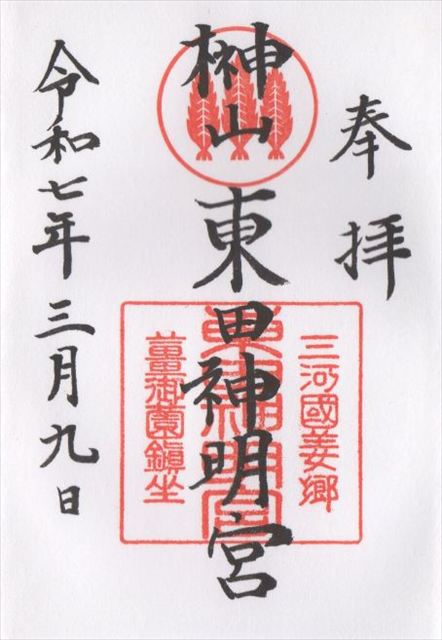 奉拝
榊山 東田神明宮
三河國姜郷
東田神明宮
薑御薗鎮坐
令和七年三月九日